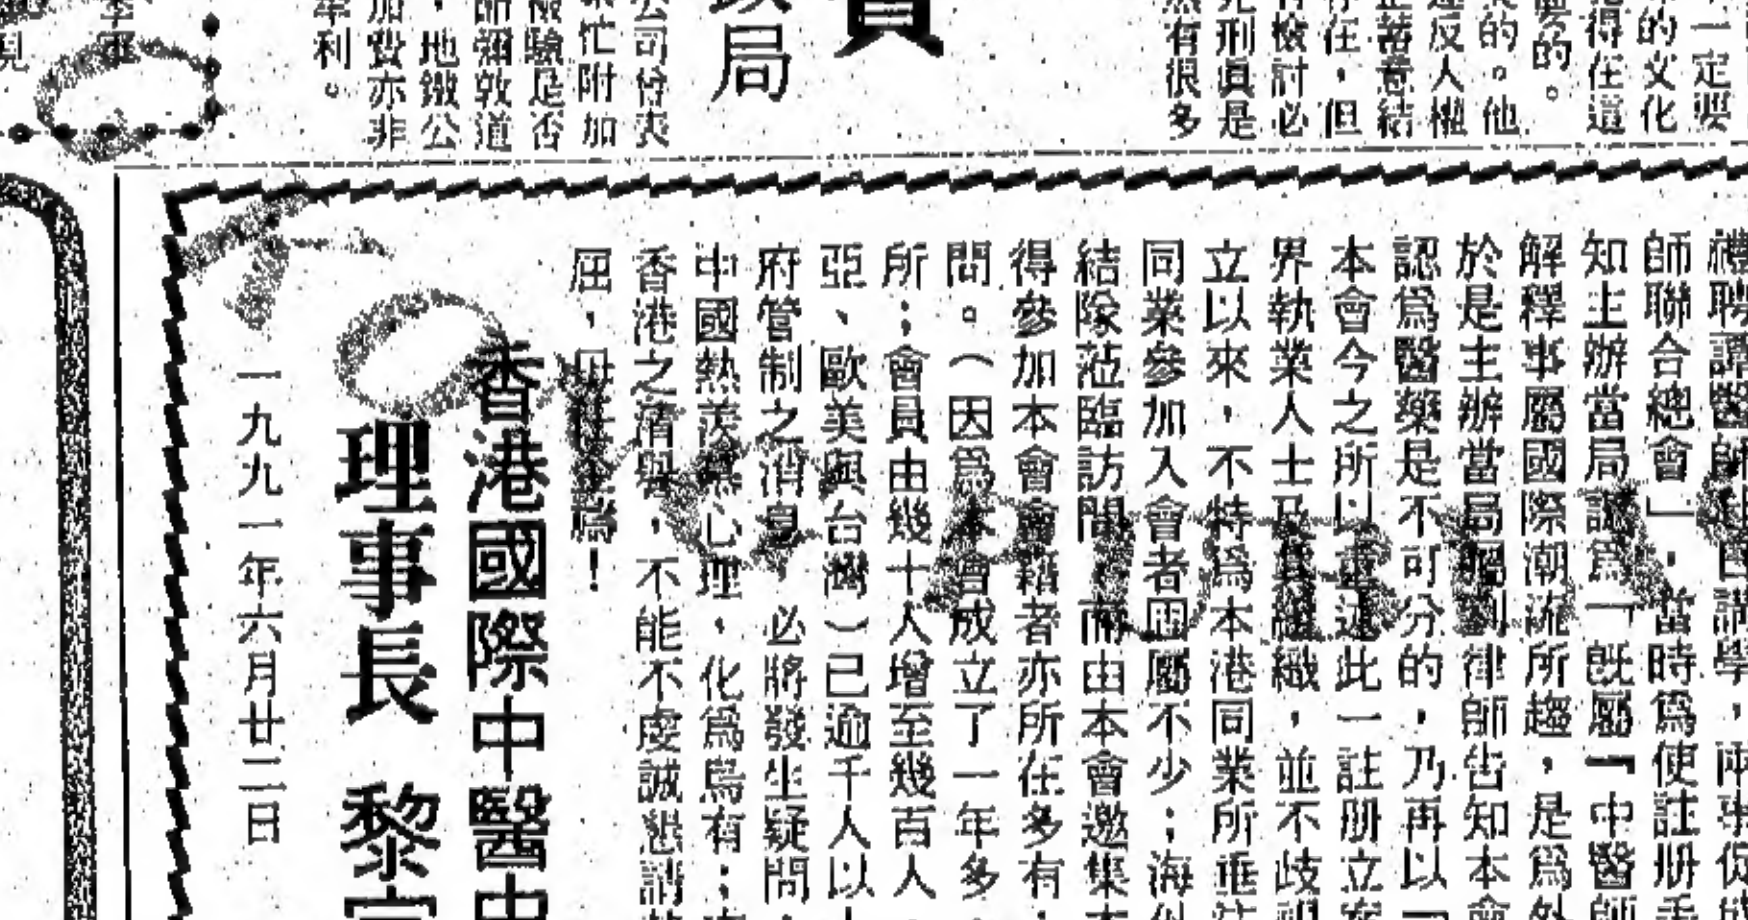 一定要
的文化
得在這
的。
的。他
違反人權
蓄意結
存在，但
有檢討必
死刑眞是
然有很多
局
公司發表
附加
檢驗是否
彌敦道
，地鐵公
加費亦非
利。
禮聘譚醫師
講學，兩事
師聯合總會」，當時爲使註册手
知主辦當局誤爲「旣屬『中醫師
解釋事屬國際潮流所趨，是爲外
於是主辦當局囑劉律師告知本會
認爲醫藥是不可分的，乃再以「
本會今之所以重述此一註册立案
界執業人士及其組織，並不歧視
立以來，不特爲本港同業所垂注
同業參加入會者固屬不少；海外
結隊蒞臨訪問，而由本會邀集本
得參加本會會籍者亦所在多有，
問。（因爲本會成立了一年多，
所；會員由幾十人增至幾百人，
亞、歐美與台灣）已逾千人以
府管制之消息，必將發生疑問，
中國熱羨慕心理，化爲烏有；
香港之清譽，不能不虔誠懇請
屈，毋任企禱！
香港國際中醫中
理事長　黎
一九九一年六月廿二日